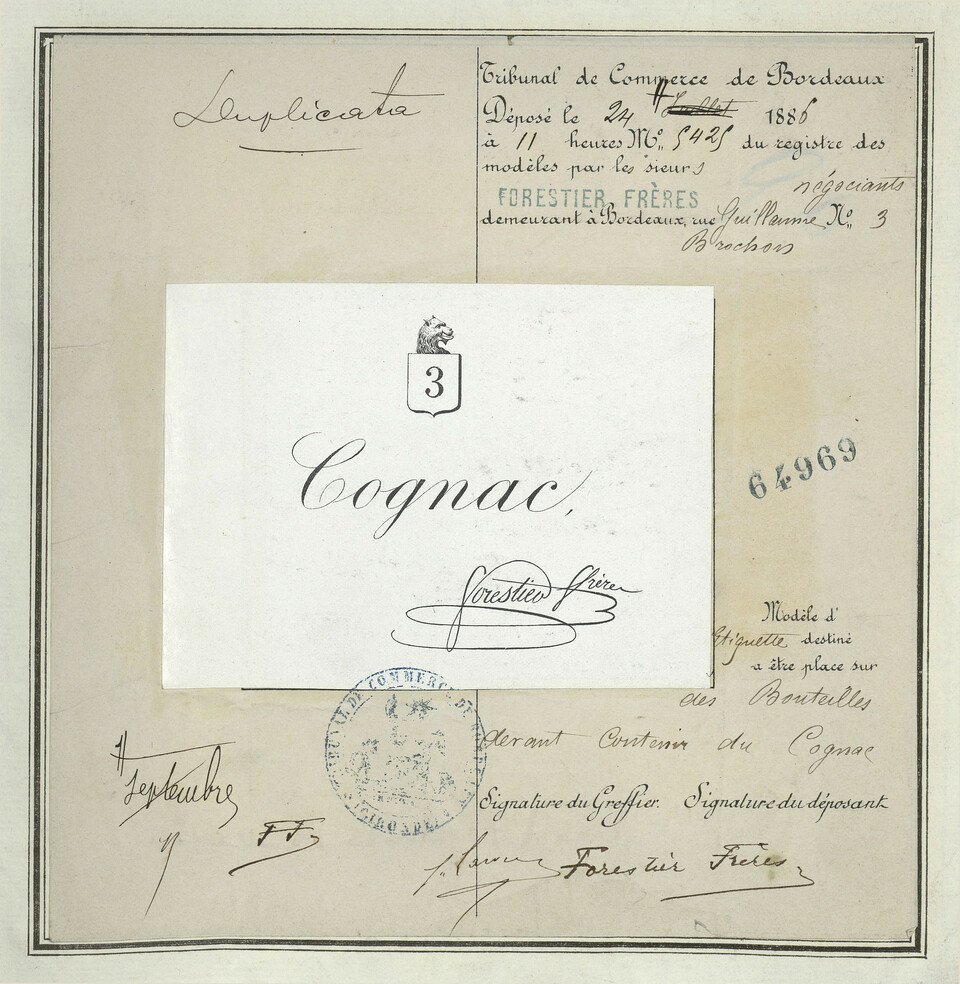 Duplicata
Tribunal de Commerce de Bordeaux
Déposé le 24 Juillet 1886
à 11 heures No. 5425 du registre des
modèles par les sieurs
négociants
FORESTIER FRÈRES
demeurant à Bordeaux, rue Guillaume No. 3
Brochon
3
Cognac,
Forestier Frères
64969
Modèle d'
Etiquette destiné
a être place sur
des Bouteilles
devant contenir du Cognac
TRIBUNAL DE COMMERCE DE
GIRONDE
Septembre
FF
Signature du Greffier. Signature du déposant
Forestier Frères